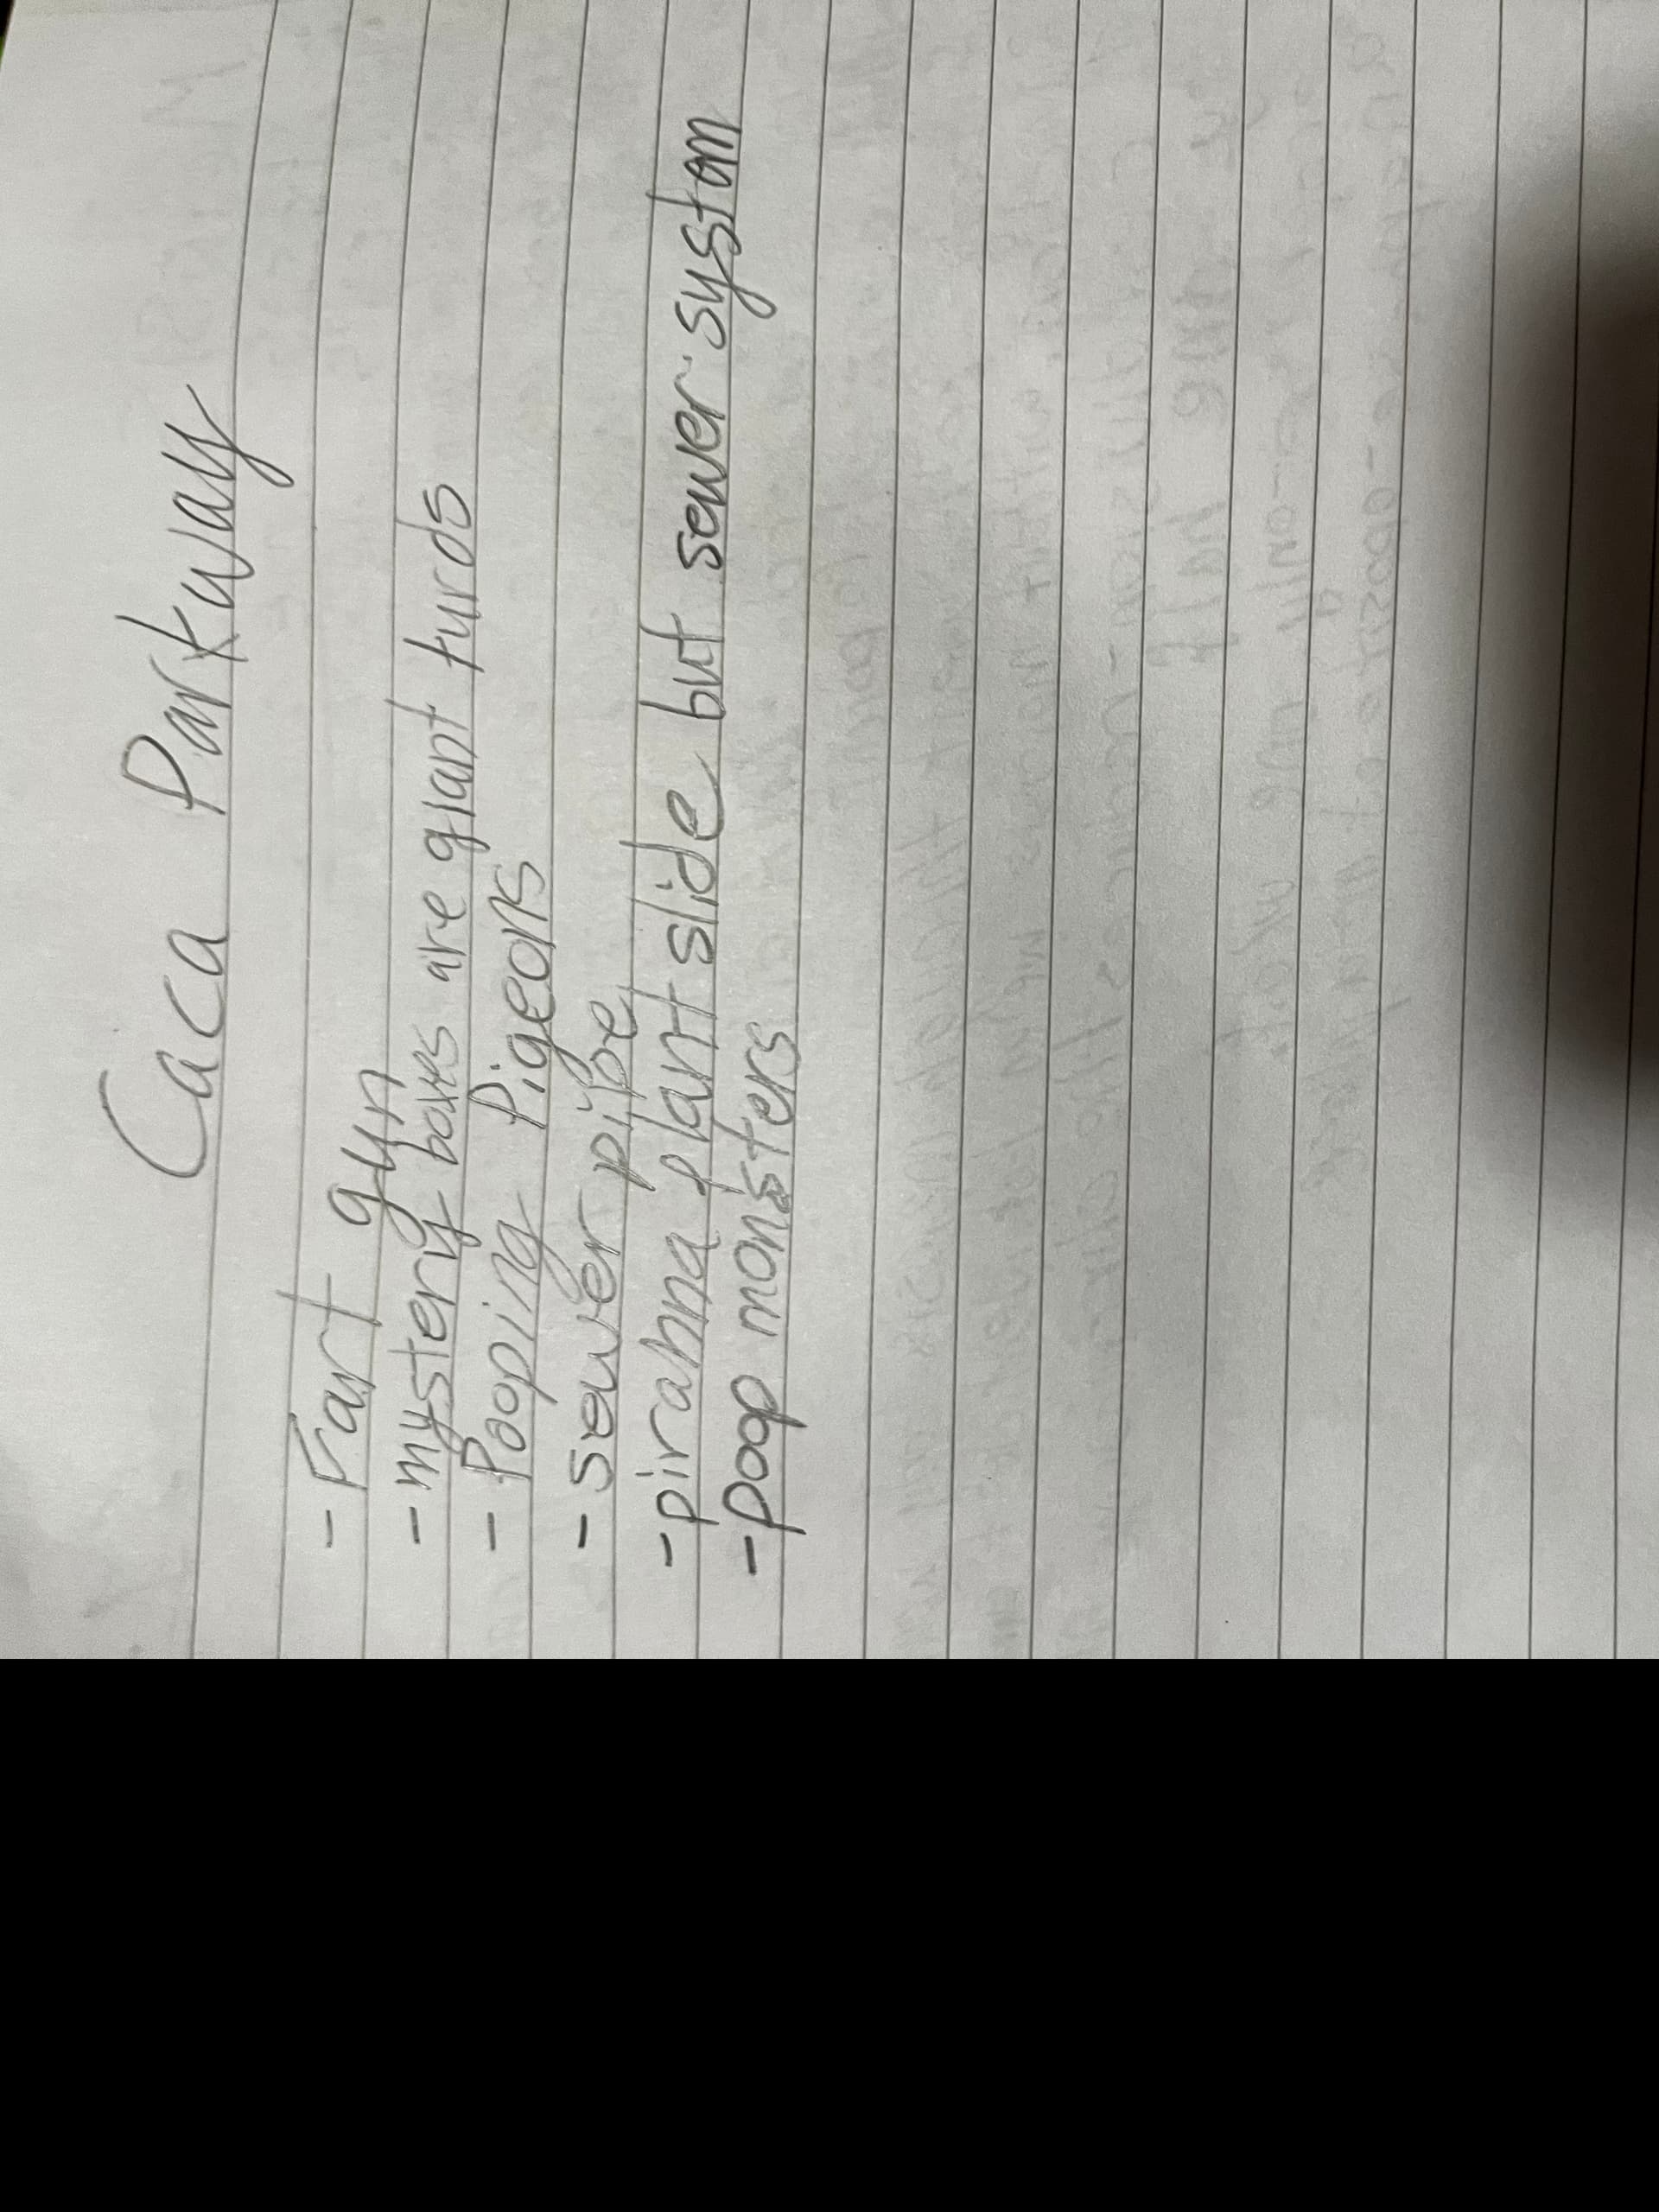 Caca Parkway
- Fart gun
- mystery boxes are giant turds
- Pooping Pigeons
- sewer pipe
- pirahna plant slide but sewer system
- poop monsters